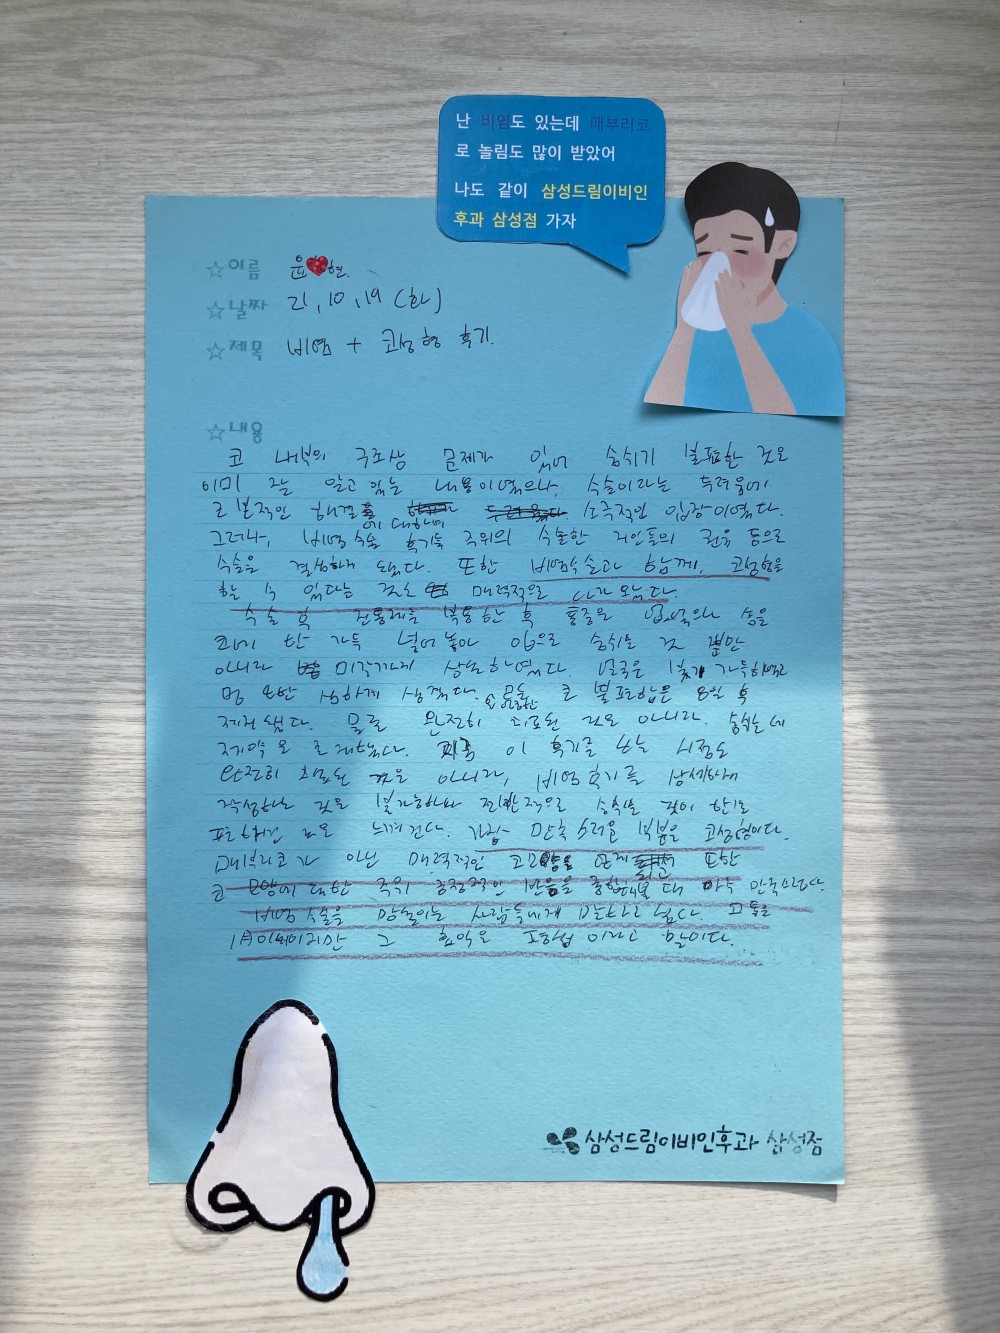 난 비염도 있는데 매부리코
로 놀림도 많이 받았어
나도 같이 삼성드림이비인
후과 삼성점 가자
☆이름 윤❤현.
☆날짜 21, 10, 19 (화)
☆제목 비염 + 코성형 후기.
☆내용
코 내부의 구조상 문제가 있어 숨쉬기 불편한 것은
이미 잘 알고 있는 내용이였으나, 수술이라는 두려움에
근본적인 해결에 대하여 소극적인 입장이였다.
그러나, 비염수술 후기들 주위의 수술한 지인들의 권유 등으로
수술을 결심하게 됐다. 또한 비염수술과 함께, 코성형을
할 수 있다는 것은 매력적으로 다가 왔다.
수술 후 진통제를 복용한 후 통증은 없었으나 솜을
코에 한 가득 넣어놓아 입으로 숨쉬는 것 뿐만
아니라 미각까지 상실하였다. 얼굴은 붓기 가득하였고
멍 또한 심하게 생겼다. 코 불편함은 8일 후
제거됐다. 물론 완전히 치료된 것은 아니라. 숨쉬는데
제약은 존재했다. 지금 이 후기를 쓰는 시점도
완전히 치료된 것은 아니라, 비염후기를 상세하게
작성하는 것은 불가능하나 전반적으로 숨쉬는 것이 한결
편해진 것은 느껴진다. 가장 만족스러운 부분은 코성형이다.
매부리코가 아닌 매력적인 코모양을 얻게 또한
코 모양에 대한 주위 긍정적인 반응을 종합해볼 때 아주 만족한다
비염 수술을 망설이는 사람들에게 말하고 싶다. 고통은
1主일이지만 그 효익은 평생이라고 말이다.
삼성드림이비인후과 삼성점